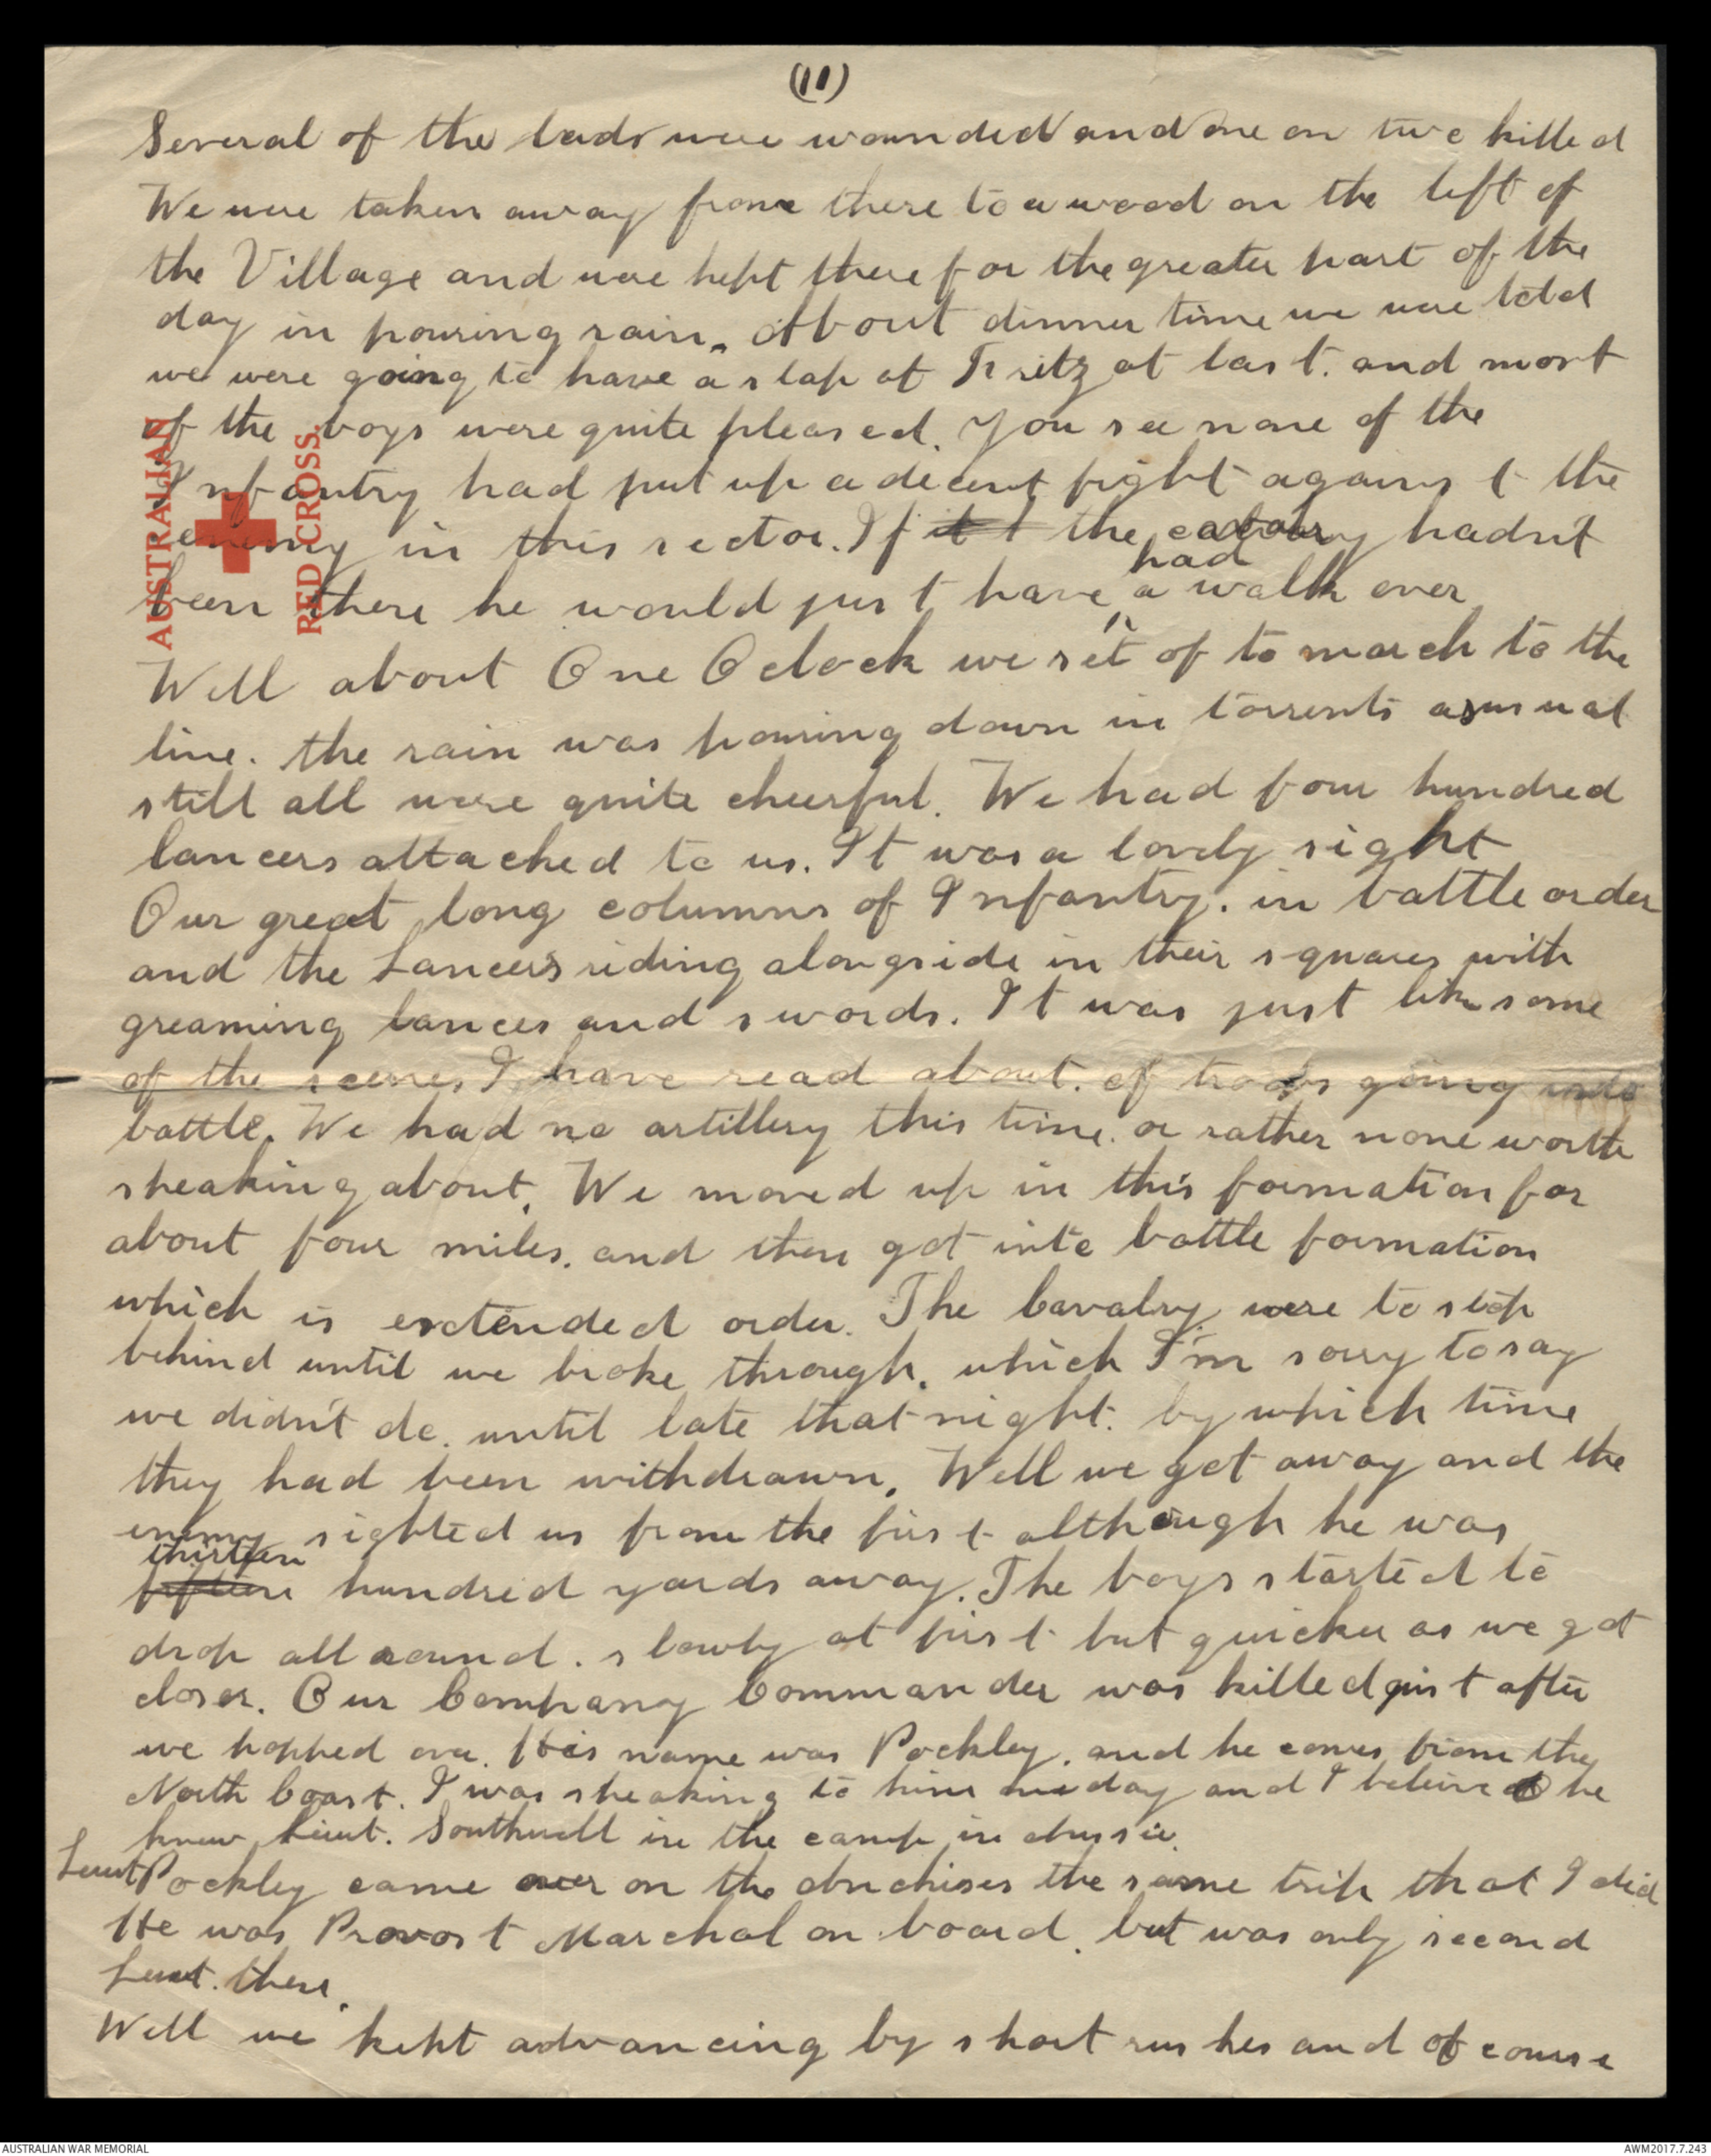 (11)
Several of the lads were wounded and one or two killed
We were taken away from there to a wood on the left of
the Village and were kept there for the greater part of the
day in pouring rain. About dinner time we were told
we were going to have a slap at Fritz at last. and most
of the boys were quite pleased. You see none of the
Infantry had put up a decent fight against the
enemy in this sector. If it the cavalry hadn't
had
been there he would just have a walk over
Well about One O clock we set of to march to the
line. the rain was pouring down in torrents as usual
still all were quite cheerful. We had four hundred
lancers attached to us. It was a lovely sight
Our great long columns of Infantry. in battle order
and the Lancers riding alongside in their squares with
greaming lances and swords. It was just like some
of the scenes I have read about. of troops going into
battle. We had no artillery this time. or rather none worth
speaking about. We moved up in this formation for
about four miles. and then got into battle formation
which is extended order. The Cavalry were to stop
behind until we broke through. which I'm sorry to say
we didn't do. until late that night. by which time
they had been withdrawn. Well we got away and the
enemy sighted us from the first although he was
thirteen
fifteen hundred yards away. The boys started to
drop all round. slowly at first but quicker as we got
closer. Our Company Commander was killed just after
we hopped over. His name was Pockley. and he comes from the
North Coast. I was speaking to him one day and I believe he
knew Lieut. Southwell in the camp in Aussie.
Lieut Pockley came over on the Anchises the same trip that I did
He was Provost Marchal on board. but was only second
Lieut. there.
Well we kept advancing by short rushes and of course
AUSTRALIAN
RED CROSS.
AUSTRALIAN WAR MEMORIAL
AWM2017.7.243